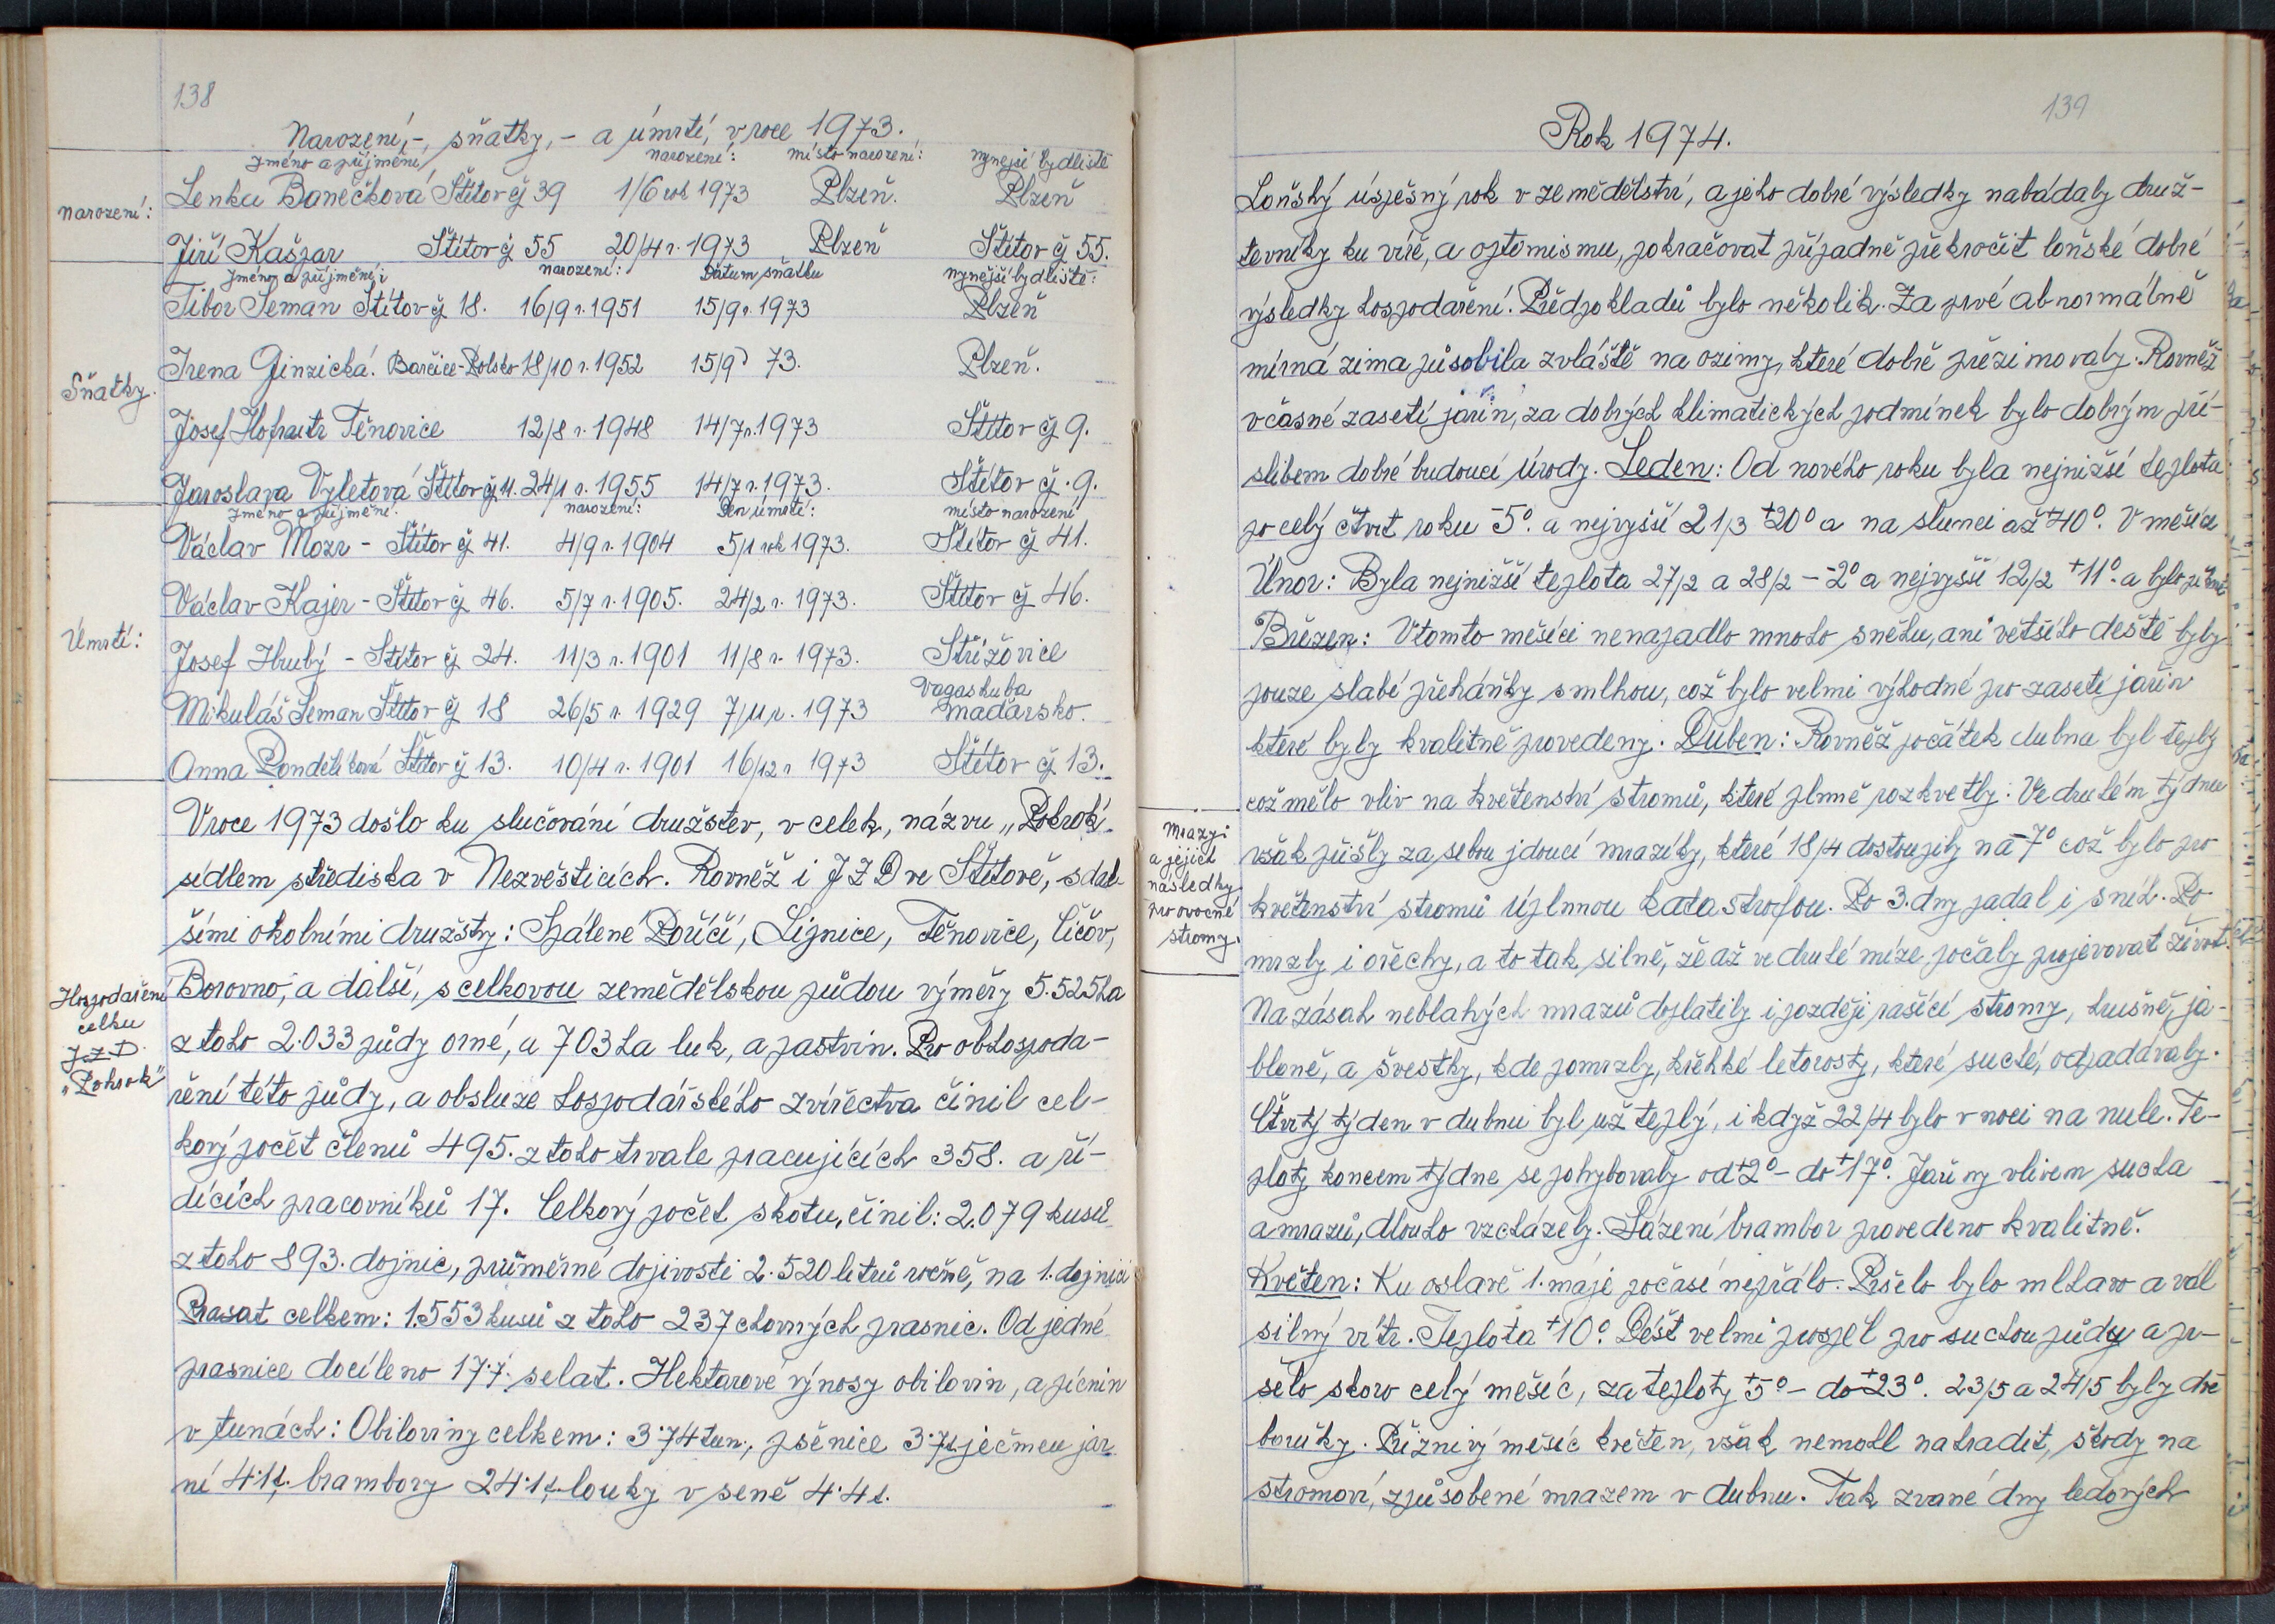 138
Narození,-, sňatky,- a úmrtí, v roce 1973.
Jméno a příjmení narozené: místo narození: nynejší bydliště
narození:
Lenka Banečková Štítov čj 39 1/6 rok 1973 Plzeň. Plzeň
Jiří Kašpar Štítov čj 55 20/4 r. 1973 Plzeň Štítov čj 55.
Jméno a příjmení: narození: Datum sňatku nynější bydliště:
Tibor Seman Štítov čj 18. 16/9 r. 1951 15/9 r. 1973 Plzeň
Sňatky.
Irena Ginzická. Barčice-Polsko 18/10 r. 1952 15/9 73. Plzeň.
Josef Těnovice 12/8 r. 1948 14/7 r. 1973 Štítov čj 9.
Jaroslava Vyletová Štítov čj 11. 24/1 r. 1955 14/7 r. 1973. Štítov čj. 9.
Jméno a příjmení. narození: Den úmrtí: místo narození
Václav Mozr - Štítov čj 41. 4/9 r. 1904 5/1 rok 1973. Štítov čj 41.
Václav Kajer - Štítov čj 46. 5/7 r. 1905. 24/2 r. 1973. Štítov čj 46.
Úmrtí:
Josef Hrubý - Štítov čj 24. 11/3 r. 1901 11/8 r. 1973. Střížovice
Mikuláš Seman Štítov čj 18 26/5 r. 1929 7/11 r. 1973 Vagashuba Maďarsko.
Anna Pondělíková Štítov čj 13. 10/4 r. 1901 16/12 r 1973 Štítov čj 13.
V roce 1973 došlo ku slučování družstev, v celek, názvu „Pokrok“
sídlem střediska v Nezvěsticích. Rovněž i JZD ve Štítově, s dal-
šími okolními družstvy: Spálené Poříčí, Lipnice, Těnovice, Číčov,
Hospodaření
celku
J.Z.D.
„Pokrok“
Borovno, a další, s celkovou zemědělskou půdou výměry 5.525 ha
z toho 2.033 půdy orné, a 703 ha luk, a pastvin. Pro obhospoda-
ření této půdy, a obsluze hospodářského zvířectva činil cel-
kový počet členů 495. z toho trvale pracujících 358. a ří-
dících pracovníků 17. Celkový počet skotu, činil: 2.079 kusů
z toho 893. dojnic, průměrné dojivosti 2.520 litrů ročně, na 1. dojnici
Prasat celkem: 1553 kusů z toho 237 chovných prasnic. Od jedné
prasnice docíleno 17.7. selat. Hektarové výnosy obilovin, a pícnin
v tunách: Obiloviny celkem: 3.74 tun., pšenice 3.7t. ječmen jar-
ní 4.1t. brambory 24.1t. louky v seně 4.4t.
139
Rok 1974.
Loňský úspešný rok v zemědělství, a jeho dobré výsledky nabádaly druž-
tevníky ku víře, a optomismu, pokračovat případně překročit loňské dobré
výsledky hospodaření. Předpokladů bylo několik. Za prvé abnormálně
mírná zima působila zvláště na ozimy, které dobře přezimovaly. Rovněž
včasné zasetí jařin, za dobrých klimatických podmínek bylo dobrým pří-
slibem dobré budoucí úrody. Leden: Od nového roku byla nejnižší teplota
po celý čtvrt roku -5°. a nejvyšší 21/3 +20° a na slunci až +40°. V měsíci
Únor: Byla nejnižší teplota 27/2 a 28/2 - -2° a nejvyšší 12/2 +11°. a bylo
Březen: V tomto měsíci nenapadlo mnoho sněhu, ani většího deště byly
pouze slabé přeháňky s mlhou, což bylo velmi výhodné pro zasetí jařin
které byly kvalitně provedeny. Duben: Rovněž počátek dubna byl teplý
což mělo vliv na květenství stromů, které plnně rozkvetly. Ve druhém týdnu
Mrazy:
a jejich
následky
pro ovocné
stromy.
však přišly za sebou jdoucí mrazíky, které 18/4 dostoupily na -7° což bylo pro
květenství stromů úplnnou katastrofou. Po 3. dny padal i sníh. Po-
mrzly i ořechy, a to tak silně, že až ve druhé míze počaly projevovat život.
Na zásah neblahých mrazů doplatily i později rašící stromy, hrušně, ja-
bloně, a švestky, kde pomrzly, křehké letorosty, které suché, odpadávaly.
Čtvrtý týden v dubnu byl už teplý, i když 22/4 bylo v noci na nule. Te-
ploty koncem týdne se pohybovaly od +2° - do +17°. Jařiny vlivem sucha
a mrazů, dlouho vzcházely. Sázení brambor provedeno kvalitně.
Květen: Ku oslavě 1. máje počasí nepřálo. Pršelo bylo mlhavo a vál
silný vítr. Teplota +10°. Déšť velmi prospěl pro suchou půdu a pr-
šelo skoro celý měsíc, za teploty +5° - do +23°. 23/5 a 24/5 byly dvě
bouřky. Příznivý měsíc květen, však nemohl nahradit, škody na
stromoví, způsobené mrazem v dubnu. Tak zvané dny ledových